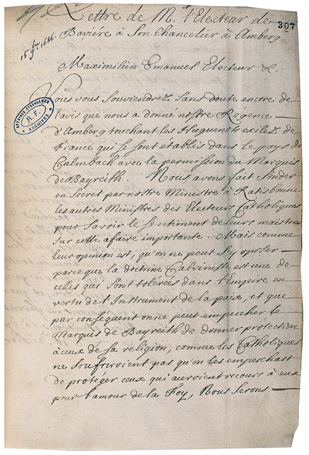 Lettre de M. l'Electeur de
Baviere à Son Chancelier à Amberg
307
15 9bre 1686.
Maximilien Emanuel Electeur &.
Vous vous souviendrez sans doute encore de
l'avis que nous a donné nostre Regence
d'Amberg touchant les Huguenots exilez de
France qui se sont etablis dans le pays de
Culenbach avec la permission du Marquis
de Bayreith. Nous avons fait Sonder
en Secret par nostre Ministre à Ratisbonne
les autres Ministres des Electeurs Catholiques
pour Savoir le Sentiment de leurs maistres
sur cette afaire importante. Mais comme
leur opinion est, qu'on ne peut s'y oposer
parce que la doctrine Calviniste est une de
celles qui sont tolerées dans l'Empire en
vertu de l'Instrument de la paix, et que
par consequent on ne peut empescher le
Marquis de Bayreith de donner protection
à ceux de sa religion, comme les Catholiques
ne soufriroient pas qu'on les empeschast
de proteger ceux qui auroient recours à eux
pour l'amour de la Foy, Nous Serons
R.F.